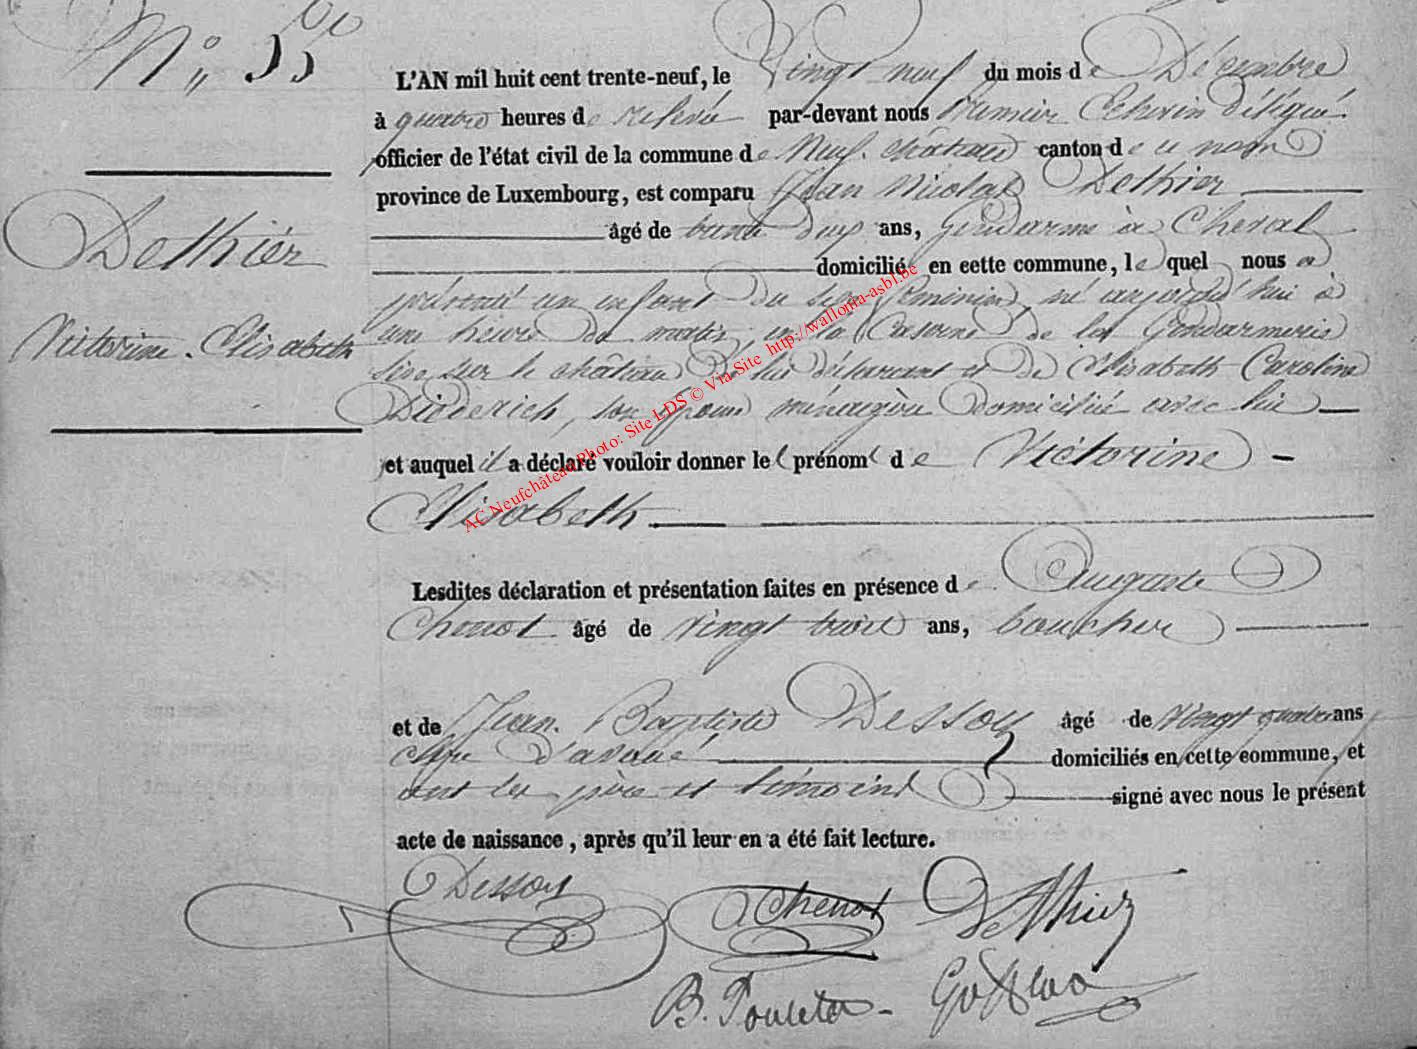 N° 55
L'AN mil huit cent trente-neuf, le Vingt neuf du mois de Décembre
à quatre heures de relevée par-devant nous Premier Echevin délégué
officier de l'état civil de la commune de Neufchâteau canton de ce nom
province de Luxembourg, est comparu Jean Nicolas Dethier
âgé de trente deux ans, Gendarme à Cheval
domicilié en cette commune, lequel nous a
présenté un enfant du sexe féminin, né aujourd'hui à
une heure du matin, en la Caserne de la Gendarmerie
sise sur le château de lui déclarant et de Elisabeth Caroline
Diederich, son épouse ménagère domiciliée avec lui
et auquel il a déclaré vouloir donner les prénoms de Victorine
Elisabeth
Dethier
Victorine Elisabeth
Lesdites déclaration et présentation faites en présence de Auguste
Chenot âgé de vingt trois ans, boucher
et de Jean Baptiste Dessoy âgé de vingt quatre ans
clerc d'avoué domiciliés en cette commune, et
ont les père et témoins signé avec nous le présent
acte de naissance, après qu'il leur en a été fait lecture.
Dessoy Chenot Dethier
AC Neufchâteau Photo: Site LDS © Via Site http://wallonia-asbl.be